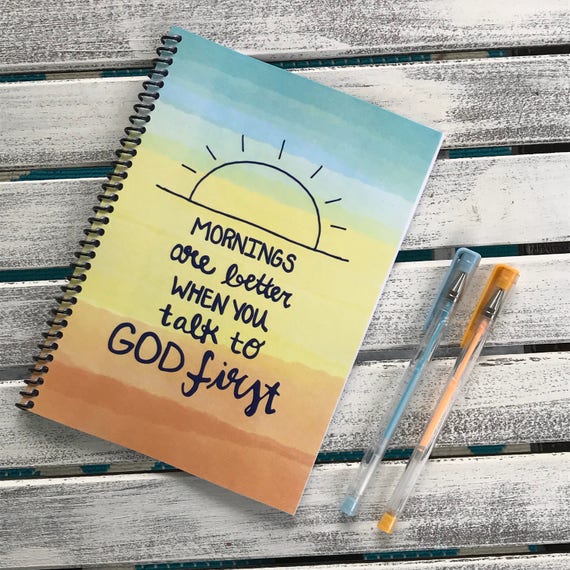 MORNINGS
are better
WHEN YOU
talk to
GOD first